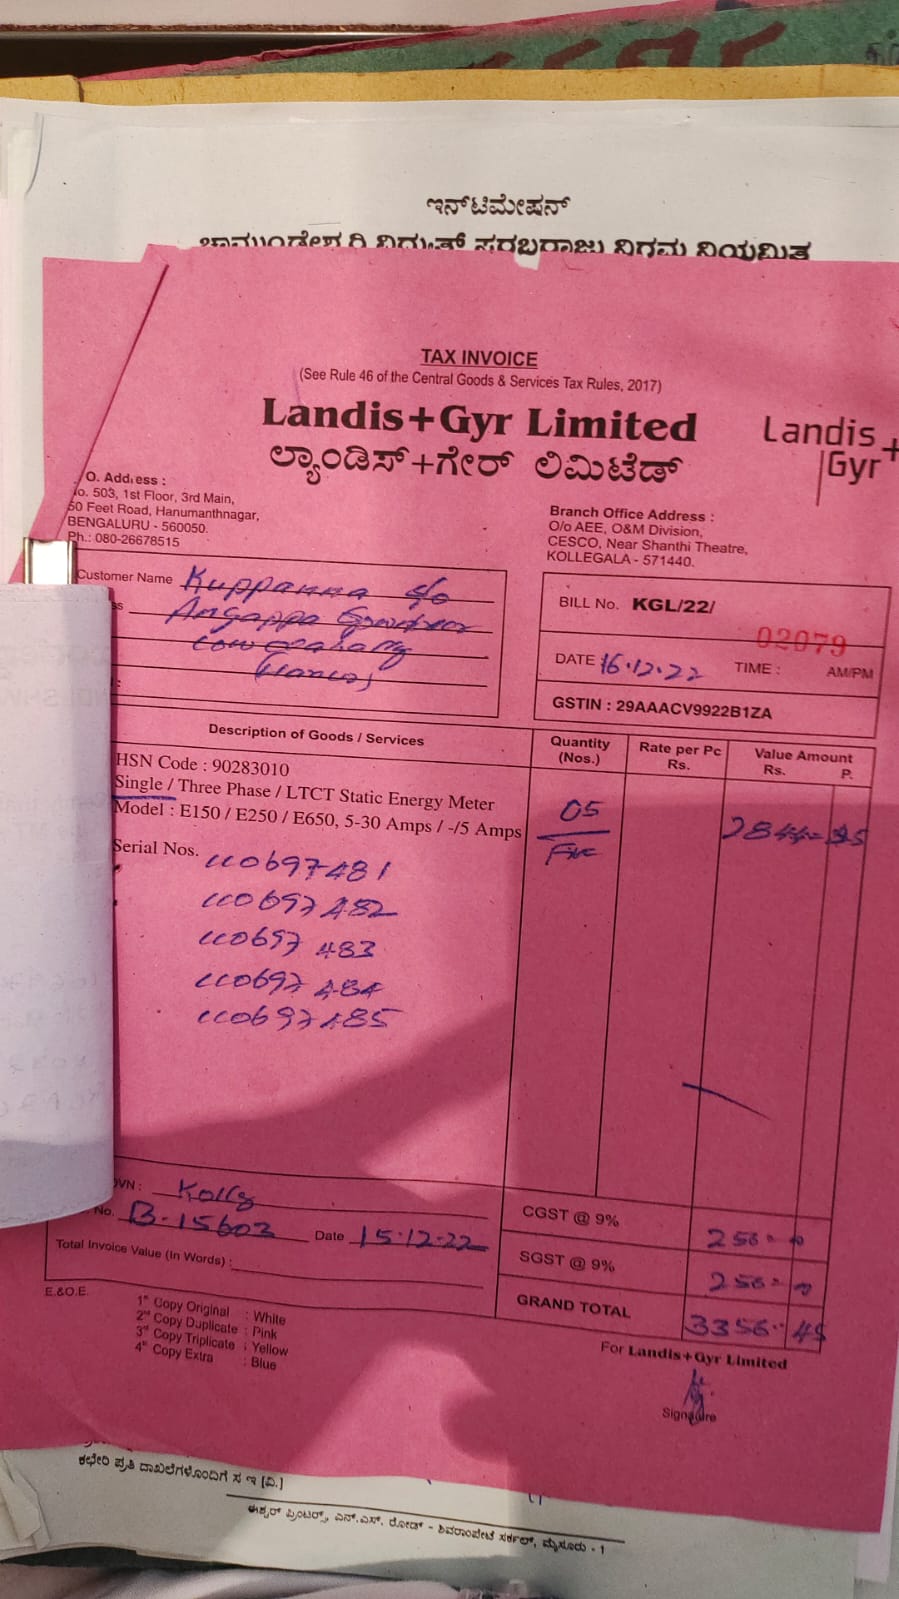 ಇನ್‌ಟಿಮೇಷನ್
ಚಾಮುಂಡೇಶ್ವರಿ ವಿದ್ಯುತ್ ಸರಬರಾಜು ನಿಗಮ ನಿಯಮಿತ
TAX INVOICE
(See Rule 46 of the Central Goods & Services Tax Rules, 2017)
Landis+Gyr Limited
ಲ್ಯಾಂಡಿಸ್+ಗೇರ್ ಲಿಮಿಟೆಡ್
Landis+
Gyr
O. Address :
No. 503, 1st Floor, 3rd Main,
50 Feet Road, Hanumanthnagar,
BENGALURU - 560050.
Ph.: 080-26678515
Branch Office Address :
O/o AEE, O&M Division,
CESCO, Near Shanthi Theatre,
KOLLEGALA - 571440.
Customer Name Kuppanna S/o
Angappa Gowder
BILL No. KGL/22/
02079
DATE 16.12.22 TIME : AM/PM
GSTIN : 29AAACV9922B1ZA
Description of Goods / Services
Quantity (Nos.)
Rate per Pc Rs.
Value Amount Rs. P.
HSN Code : 90283010
Single / Three Phase / LTCT Static Energy Meter
Model : E150 / E250 / E650, 5-30 Amps / -/5 Amps
05
Five
2844
Serial Nos. 110697481
110697482
110697483
110697484
110697485
CGST @ 9% 256
SGST @ 9% 256
GRAND TOTAL 3356 45
No. B-15603 Date 15.12.22
Total Invoice Value (In Words) :
E.&O.E.
1st Copy Original : White
2nd Copy Duplicate : Pink
3rd Copy Triplicate : Yellow
4th Copy Extra : Blue
For Landis+Gyr Limited
Signature
ಕಛೇರಿ ಪ್ರತಿ ದಾಖಲೆಗಳೊಂದಿಗೆ ಸ ಇ [ವಿ.]
ಈಶ್ವರ್ ಪ್ರಿಂಟರ್ಸ್, ಎನ್.ಎಸ್. ರೋಡ್ - ಶಿವರಾಂಪೇಟೆ ಸರ್ಕಲ್, ಮೈಸೂರು - 1